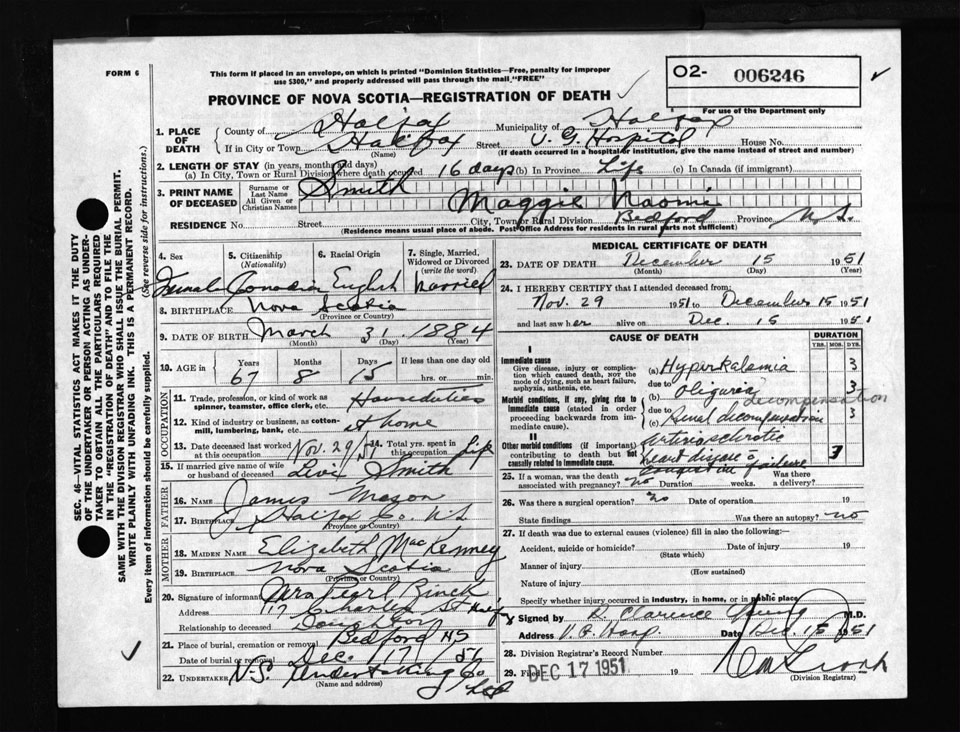 FORM 6
This form if placed in an envelope, on which is printed "Dominion Statistics—Free, penalty for improper
use $300," and properly addressed will pass through the mail "FREE"
O2- 006246
For use of the Department only
PROVINCE OF NOVA SCOTIA—REGISTRATION OF DEATH
1. PLACE OF DEATH
County of Halifax Municipality of Halifax
If in City or Town Halifax Street V. G. Hospital House No.
(Name) (If death occurred in a hospital or institution, give the name instead of street and number)
2. LENGTH OF STAY (in years, months and days)
(a) In City, Town or Rural Division where death occurred 16 days (b) In Province Life (c) In Canada (if immigrant)
3. PRINT NAME OF DECEASED
Surname or Last Name Smith
All Given or Christian Names Maggie Naomi
RESIDENCE No. Street City, Town or Rural Division Bedford Province N. S.
(Residence means usual place of abode. Post Office Address for residents in rural parts not sufficient)
4. Sex Female
5. Citizenship (Nationality) Canadian
6. Racial Origin English
7. Single, Married, Widowed or Divorced (write the word) Married
8. BIRTHPLACE Nova Scotia
(Province or Country)
9. DATE OF BIRTH March 31 1884
(Month) (Day) (Year)
10. AGE in Years 67 Months 8 Days 15 If less than one day old
hrs. or min.
OCCUPATION
11. Trade, profession or kind of work as spinner, teamster, office clerk, etc. Houseduties
12. Kind of industry or business, as cotton-mill, lumbering, bank, etc. At home
13. Date deceased last worked at this occupation Nov. 29/51 14. Total yrs. spent in this occupation Life
15. If married give name of wife or husband of deceased Levi Smith
FATHER
16. NAME James Mason
17. BIRTHPLACE Halifax Co. N.S.
(Province or Country)
MOTHER
18. MAIDEN NAME Elizabeth MacKenney
19. BIRTHPLACE Nova Scotia
(Province or Country)
20. Signature of informant Mrs Pearl
Address 117 Charles St Halifax
Relationship to deceased Daughter
21. Place of burial, cremation or removal Bedford NS
Date of burial or removal Dec. 17/51
22. UNDERTAKER N.S. Undertaking Co Ltd
(Name and address)
MEDICAL CERTIFICATE OF DEATH
23. DATE OF DEATH December 15 1951
(Month) (Day) (Year)
24. I HEREBY CERTIFY that I attended deceased from:
Nov. 29 1951 to December 15 1951
and last saw her alive on Dec. 15 1951
CAUSE OF DEATH DURATION
YRS. MOS. DYS.
I
Immediate cause
Give disease, injury or complication which caused death, NOT the mode of dying, such as heart failure, asphyxia, asthenia, etc.
(a) Hyperkalemia 3
due to
Morbid conditions, if any, giving rise to immediate cause (stated in order proceeding backwards from immediate cause).
(b) oliguria 3
due to decompensation
(c) Renal decompensation 3
II
Other morbid conditions (if important) contributing to death but not causally related to immediate cause.
Arteriosclerotic
heart disease c
congestive failure 3
25. If a woman, was the death associated with pregnancy? no Duration weeks. Was there a delivery?
26. Was there a surgical operation? no Date of operation 19
State findings Was there an autopsy? no
27. If death was due to external causes (violence) fill in also the following:—
Accident, suicide or homicide? Date of injury 19
(State which)
Manner of injury
(How sustained)
Nature of injury
Specify whether injury occurred in industry, in home, or in public place
Signed by D. Clarence M.D.
Address V. G. Hosp. Date Dec. 15 1951
28. Division Registrar's Record Number
29. Filed DEC 17 1951 19
(Division Registrar)
SEC. 46—VITAL STATISTICS ACT MAKES IT THE DUTY
OF THE UNDERTAKER OR PERSON ACTING AS UNDER-
TAKER TO OBTAIN ALL THE PARTICULARS REQUIRED
IN THE "REGISTRATION OF DEATH" AND TO FILE THE
SAME WITH THE DIVISION REGISTRAR WHO SHALL ISSUE THE BURIAL PERMIT.
WRITE PLAINLY WITH UNFADING INK. THIS IS A PERMANENT RECORD.
Every item of information should be carefully supplied. (See reverse side for instructions.)